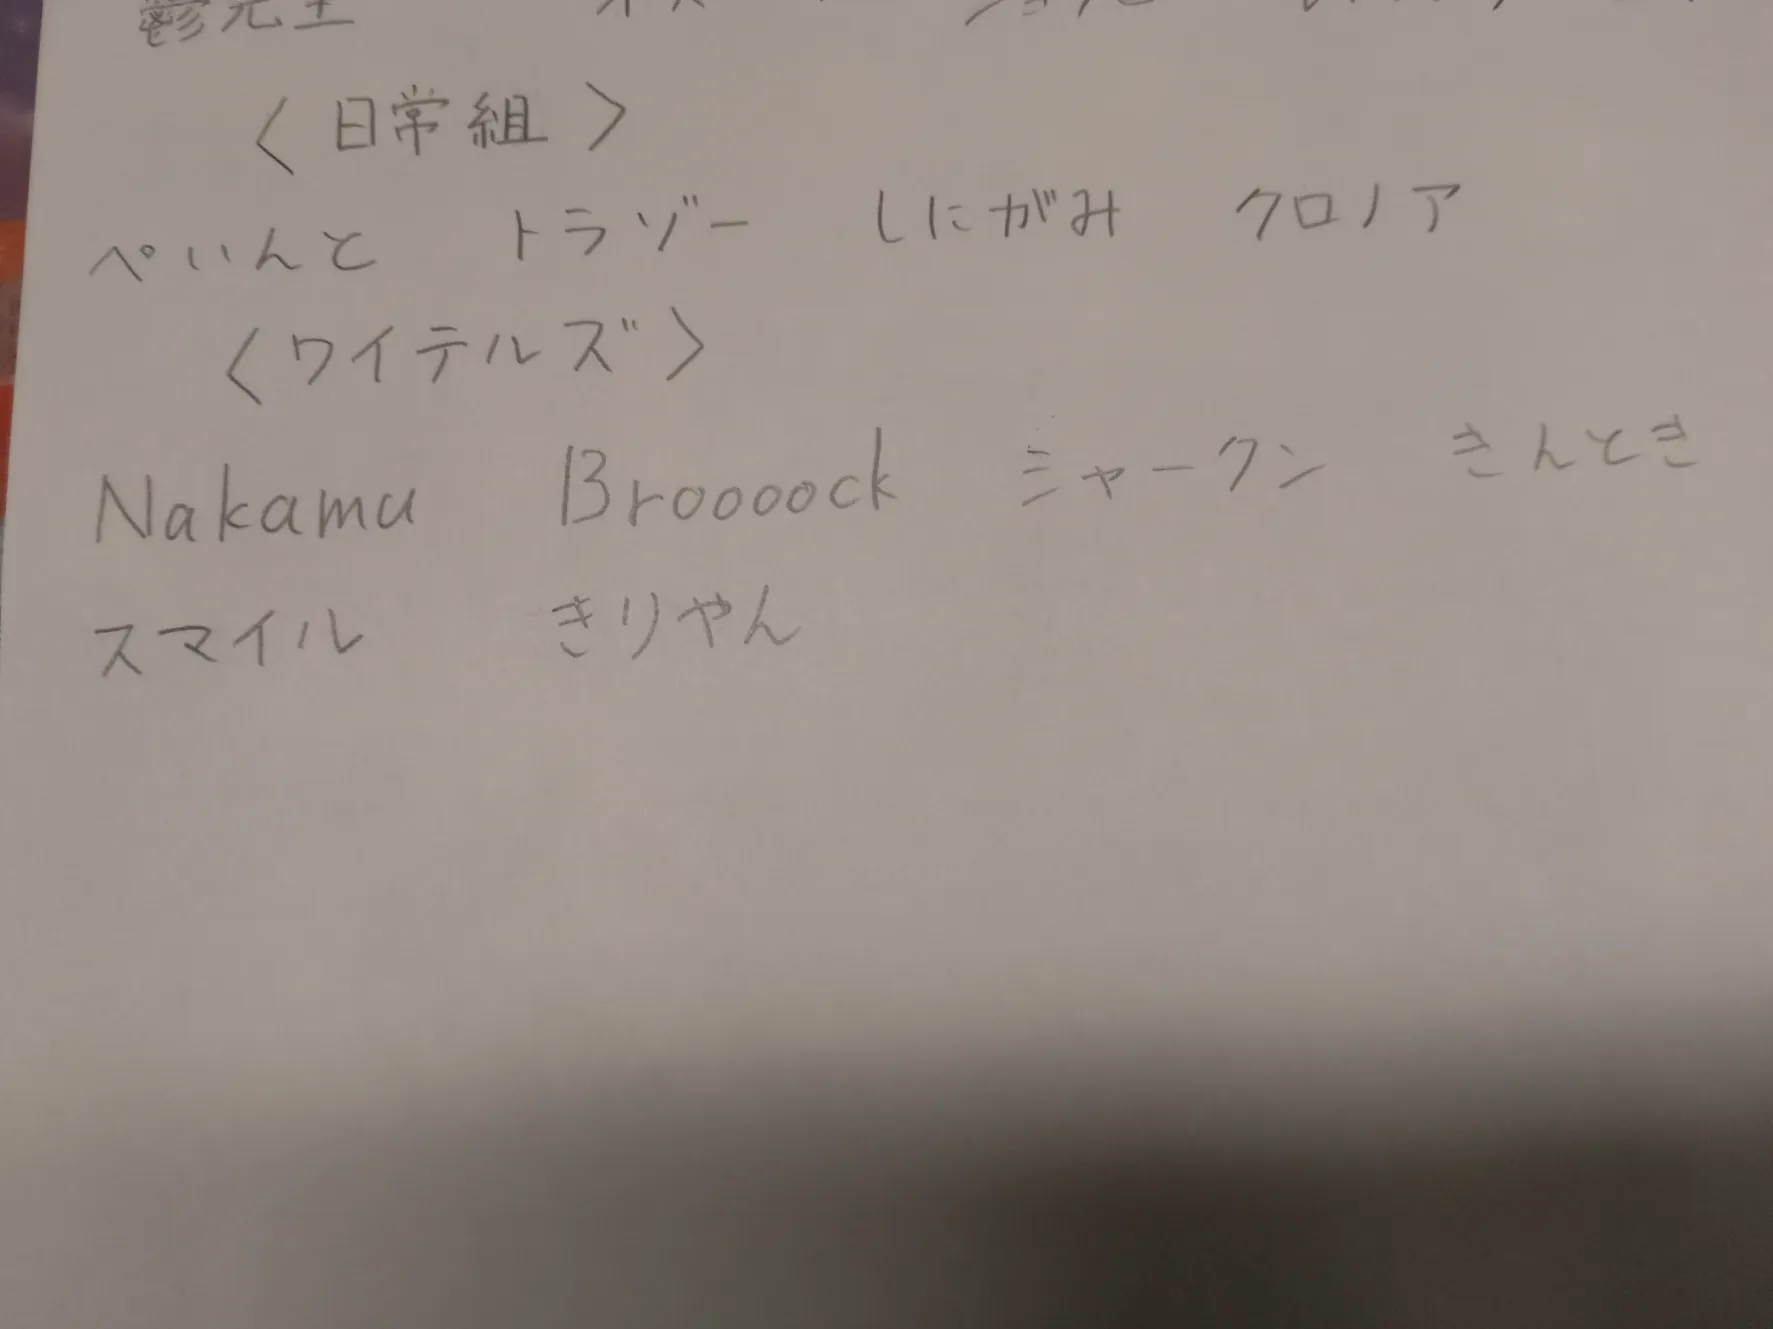 鬱先生
〈日常組〉
ぺいんと トラゾー しにがみ クロノア
〈ワイテルズ〉
Nakamu Broooock シャークン きんとき
スマイル きりやん